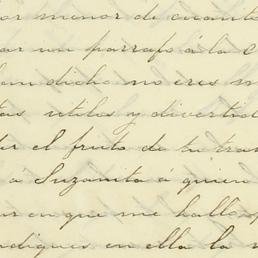 por menor de cuanto
ar un parrafo á la c
han dicho no eres m
tas utiles y divertid
er el fruto de tu tra
á Suzanita á quien
ur en que me hallo
rodigues en ella la